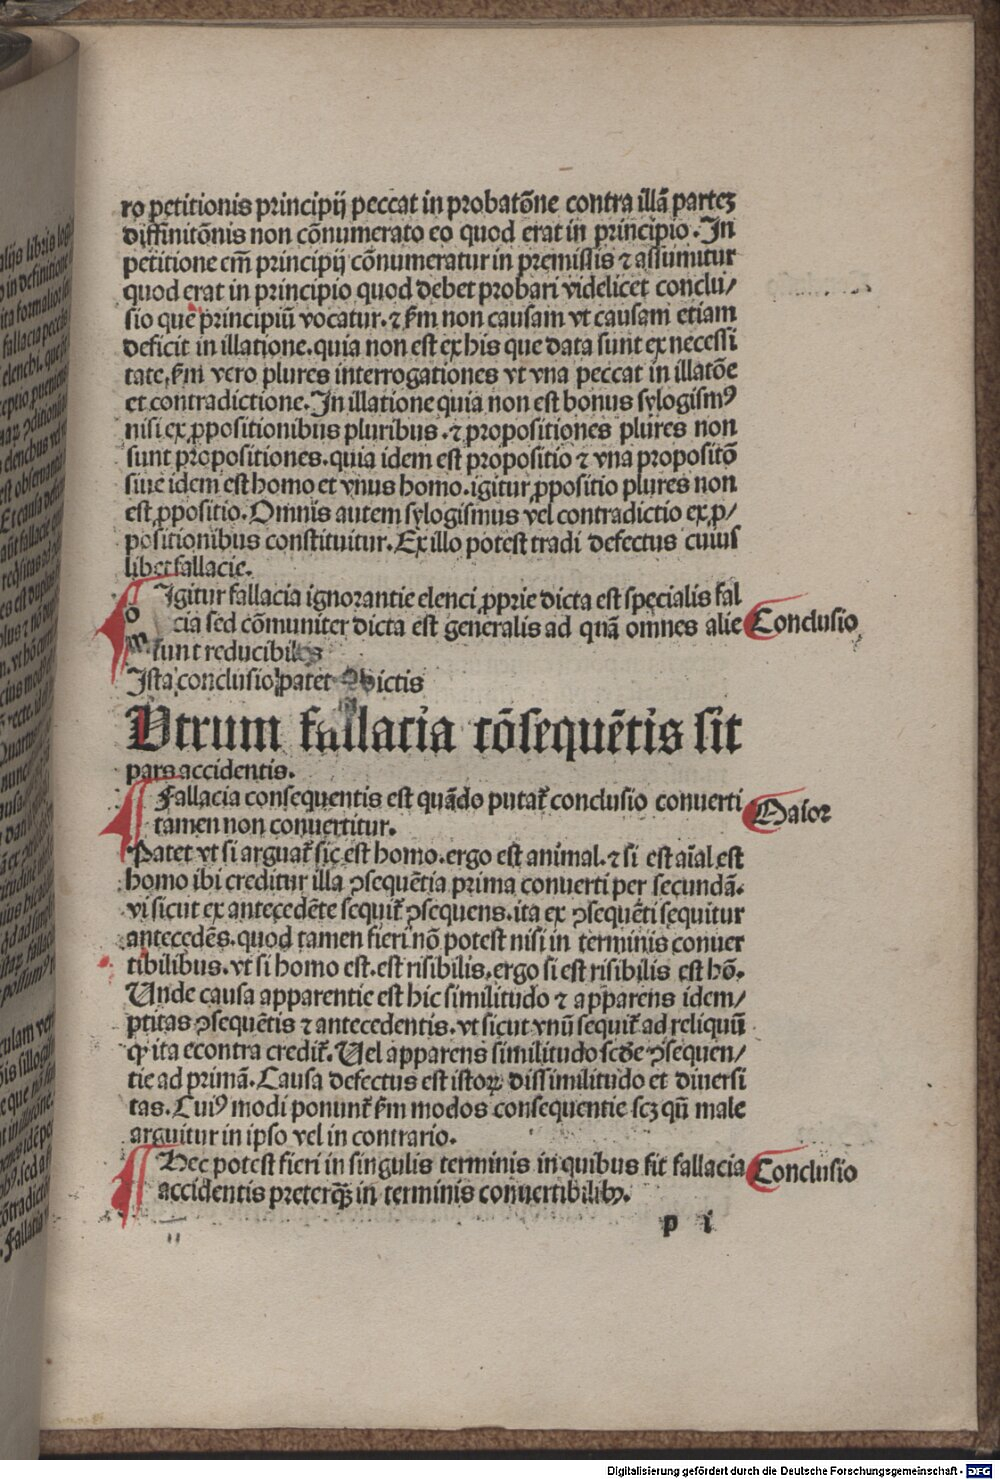 ro petitionis principij peccat in probatõne contra illã partez
diffinitõnis non cõnumerato eo quod erat in principio. In
petitione em̃ principij cõnumeratur in premissis ⁊ assumitur
quod erat in principio quod debet probari videlicet conclu/
sio que principiũ vocatur. ⁊ ẜm non causam vt causam etiam
deficit in illatione. quia non est ex his que data sunt ex necessi
tate, ẜm vero plures interrogationes vt vna peccat in illatõe
et contradictione. In illatione quia non est bonus sylogismꝰ
nisi ex ꝓpositionibus pluribus. ⁊ propositiones plures non
sunt propositiones. quia idem est propositio ⁊ vna propositõ
siue idem est homo et vnus homo. igitur ꝓpositio plures non
est ꝓpositio. Omnis autem sylogismus vel contradictio ex ꝓ/
positionibus constituitur. Ex illo potest tradi defectus cuius
libet fallacie.
Igitur fallacia ignorantie elenci ꝓprie dicta est specialis fal
cia sed cõmuniter dicta est generalis ad quã omnes alie
sunt reducibiles
Conclusio
Ista conclusio patet ex dictis
Vtrum fallacia cõsequẽtis sit
pars accidentis.
Fallacia consequentis est quãdo putat̃ conclusio conuerti
tamen non conuertitur.
Maior
Patet vt si arguat̃ sic est homo. ergo est animal. ⁊ si est aĩal est
homo ibi creditur illa ꝯsequẽtia prima conuerti per secundã.
vt sicut ex antecedẽte sequit̃ ꝯsequens. ita ex ꝯsequẽti sequitur
antecedẽs. quod tamen fieri nõ potest nisi in terminis conuer
tibilibus. vt si homo est. est risibilis, ergo si est risibilis est hõ.
Unde causa apparentie est hic similitudo ⁊ apparens idem/
ptitas ꝯsequẽtis ⁊ antecedentis. vt sicut vnũ sequit̃ ad reliquũ
qꝫ ita econtra credit̃. Uel apparens similitudo scḋe ꝯsequen/
tie ad primã. Causa defectus est istoꝝ dissimilitudo et diuersi
tas. Cuiꝰ modi ponunt̃ ẜm modos consequentie scꝫ qñ male
arguitur in ipso vel in contrario.
Hec potest fieri in singulis terminis in quibus fit fallacia
accidentis preterqꝫ in terminis conuertibilibꝫ.
Conclusio
p i
Digitalisierung gefördert durch die Deutsche Forschungsgemeinschaft - DFG